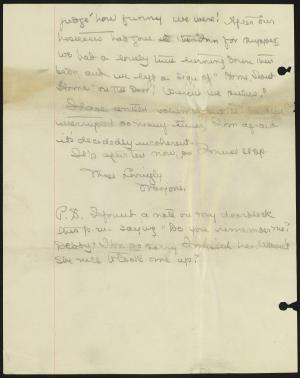 judge how funny we were! After our
hostesses had gone for supper,
we had a lovely time turning down their
beds, and we left a sign of "Home Sweet
Home" on the door! Weren't we
I have written
interrupted so many times, I'm afraid
it's decidedly incoherent.
It's after ten now, so I must stop.
Most Lovingly
Marjorie.
P.S. I found a note on my doorblock
this p.m. saying "Do you remember me?
Debby." I'm so sorry I missed her. Wasn't
she nice to look me up?